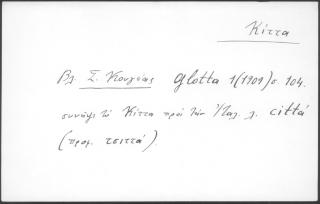 Κίττα
Βλ. Σ. Κουγέας Glotta 1(1909) σ. 104.
συνάψ. τὸ Κίττα πρὸς τὴν Ἰταλ. λ. città
(προφ. τσιττά).